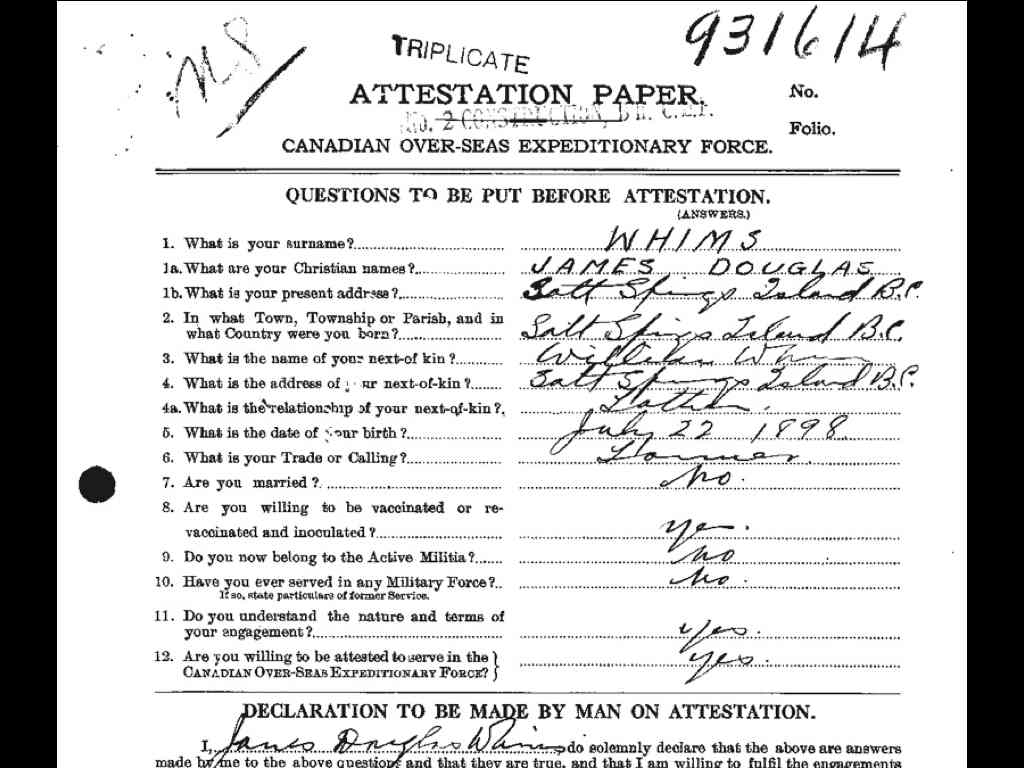 931614
TRIPLICATE
ATTESTATION PAPER. No.
No. 2 CONSTRUCTION, BN. C.E.F.
Folio.
CANADIAN OVER-SEAS EXPEDITIONARY FORCE.
QUESTIONS TO BE PUT BEFORE ATTESTATION.
(ANSWERS.)
1. What is your surname? WHIMS
1a. What are your Christian names? JAMES DOUGLAS
1b. What is your present address? Salt Springs Island B.C.
2. In what Town, Township or Parish, and in
what Country were you born? Salt Springs Island B.C.
3. What is the name of your next-of kin? William Whims
4. What is the address of your next-of-kin? Salt Springs Island B.C.
4a. What is the relationship of your next-of-kin? Father.
5. What is the date of your birth? July 22 1898
6. What is your Trade or Calling? Farmer.
7. Are you married? No.
8. Are you willing to be vaccinated or re-
vaccinated and inoculated? yes.
9. Do you now belong to the Active Militia? No
10. Have you ever served in any Military Force? No.
If so, state particulars of former Service.
11. Do you understand the nature and terms of
your engagement? yes.
12. Are you willing to be attested to serve in the }
CANADIAN OVER-SEAS EXPEDITIONARY FORCE? } yes.
DECLARATION TO BE MADE BY MAN ON ATTESTATION.
I, James Douglas Whims do solemnly declare that the above are answers
made by me to the above questions and that they are true, and that I am willing to fulfil the engagements